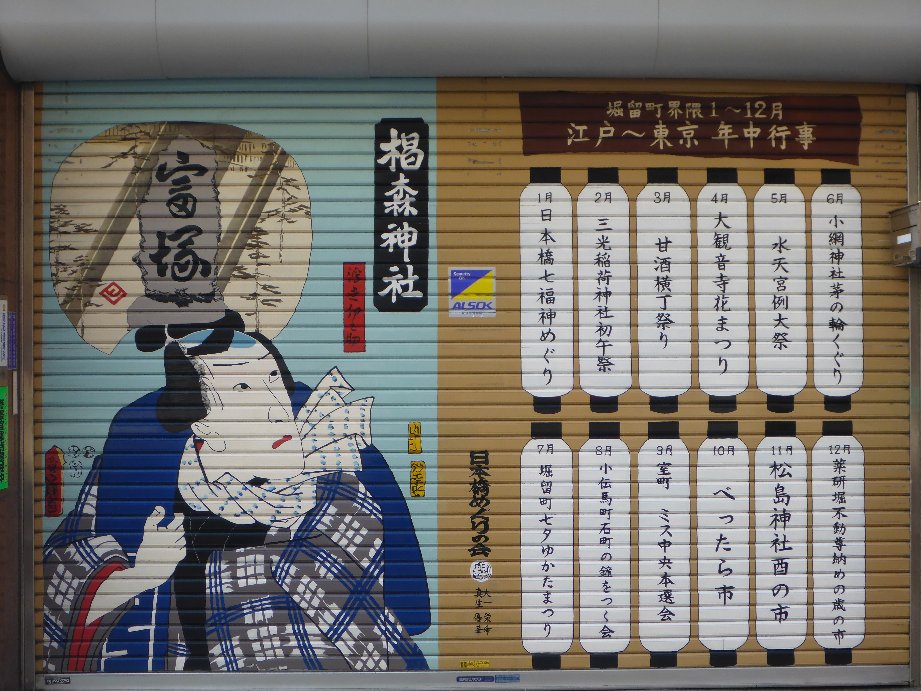 堀留町界隈1〜12月
江戸〜東京 年中行事
椙森神社
富塚
1月
日本橋七福神めぐり
2月
三光稲荷神社初午祭
3月
甘酒横丁祭り
4月
大観音寺花まつり
5月
水天宮例大祭
6月
小網神社茅の輪くぐり
7月
堀留町七夕ゆかたまつり
8月
小伝馬町石町の鐘をつく会
9月
室町 ミス中央本選会
10月
べったら市
11月
松島神社酉の市
12月
薬研堀不動尊納めの歳の市
Security
ALSOK
日本橋めぐりの会